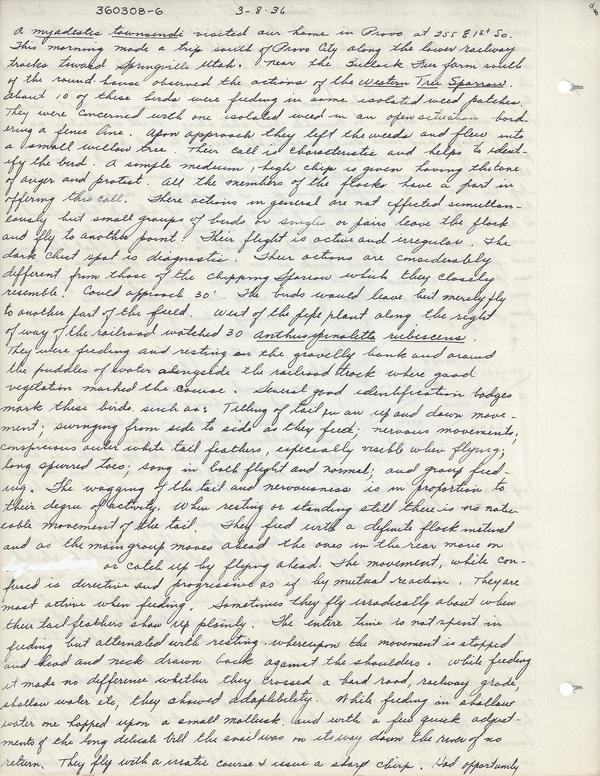 360308-6 3-8-36
A myadestes townsendi visited our home in Provo at 255 E 1st So.
This morning made a trip south of Provo City along the lower railway
tracks toward Springville Utah. Near the Fur farm south
of the round-house observed the actions of the Western Tree Sparrow.
About 10 of these birds were feeding in some isolated weed patches.
They were concerned with one isolated weed in an open situation bord-
ering a fence line. Upon approach they left the weeds and flew into
a small willow tree. Their call is characteristic and helps to ident-
ify the bird. A simple medium, high chip is given having the tone
of anger and protest. All the members of the flocks have a part in
offering this call. There actions in general are not effected simultan-
eously but small groups of birds or singles or pairs leave the flock
and fly to another point. Their flight is active and irregular. The
dark chest spot is diagnostic. Their actions are considerably
different from those of the Chipping Sparrow which they closely
resemble. Could approach 30'. The birds would leave but merely fly
to another part of the field. West of the pipe plant along the right
of way of the railroad watched 30 Anthus spinoletta rubescens.
They were feeding and resting on the gravelly bank and around
the puddles of water alongside the railroad track where good
vegitation marked the course. Several good identification badges
mark these birds such as: Tilting of tail in an up and down move-
ment; swinging from side to side as they feed; nervous movements;
conspicuous outer white tail feathers, especially visible when flying;
long spurred toes; song in both flight and normal; and group feed-
ing. The wagging of the tail and nervousness is in proportion to
their degree of activity. When resting or standing still there is no notic-
eable movement of the tail. They feed with a definite flock instinct
and as the main group moves ahead the ones in the rear move on
or catch up by flying ahead. The movement, while con-
fused is directive and progressive as if by mutual reaction. They are
most active when feeding. Sometimes they fly irradically about when
their tail feathers show up plainly. The entire time is not spent in
feeding but alternated with resting whereupon the movement is stopped
and head and neck drawn back against the shoulders. While feeding
it made no difference whether they crossed a hard road, railway grade,
shallow water etc, they showed adaptibility. While feeding in shallow
water one hopped upon a small mollusk and with a few quick adjust-
ments of the long delicate bill the snail was on its way down the river of no
return. They fly with a erratic course & issue a sharp chirp. Had opportunity